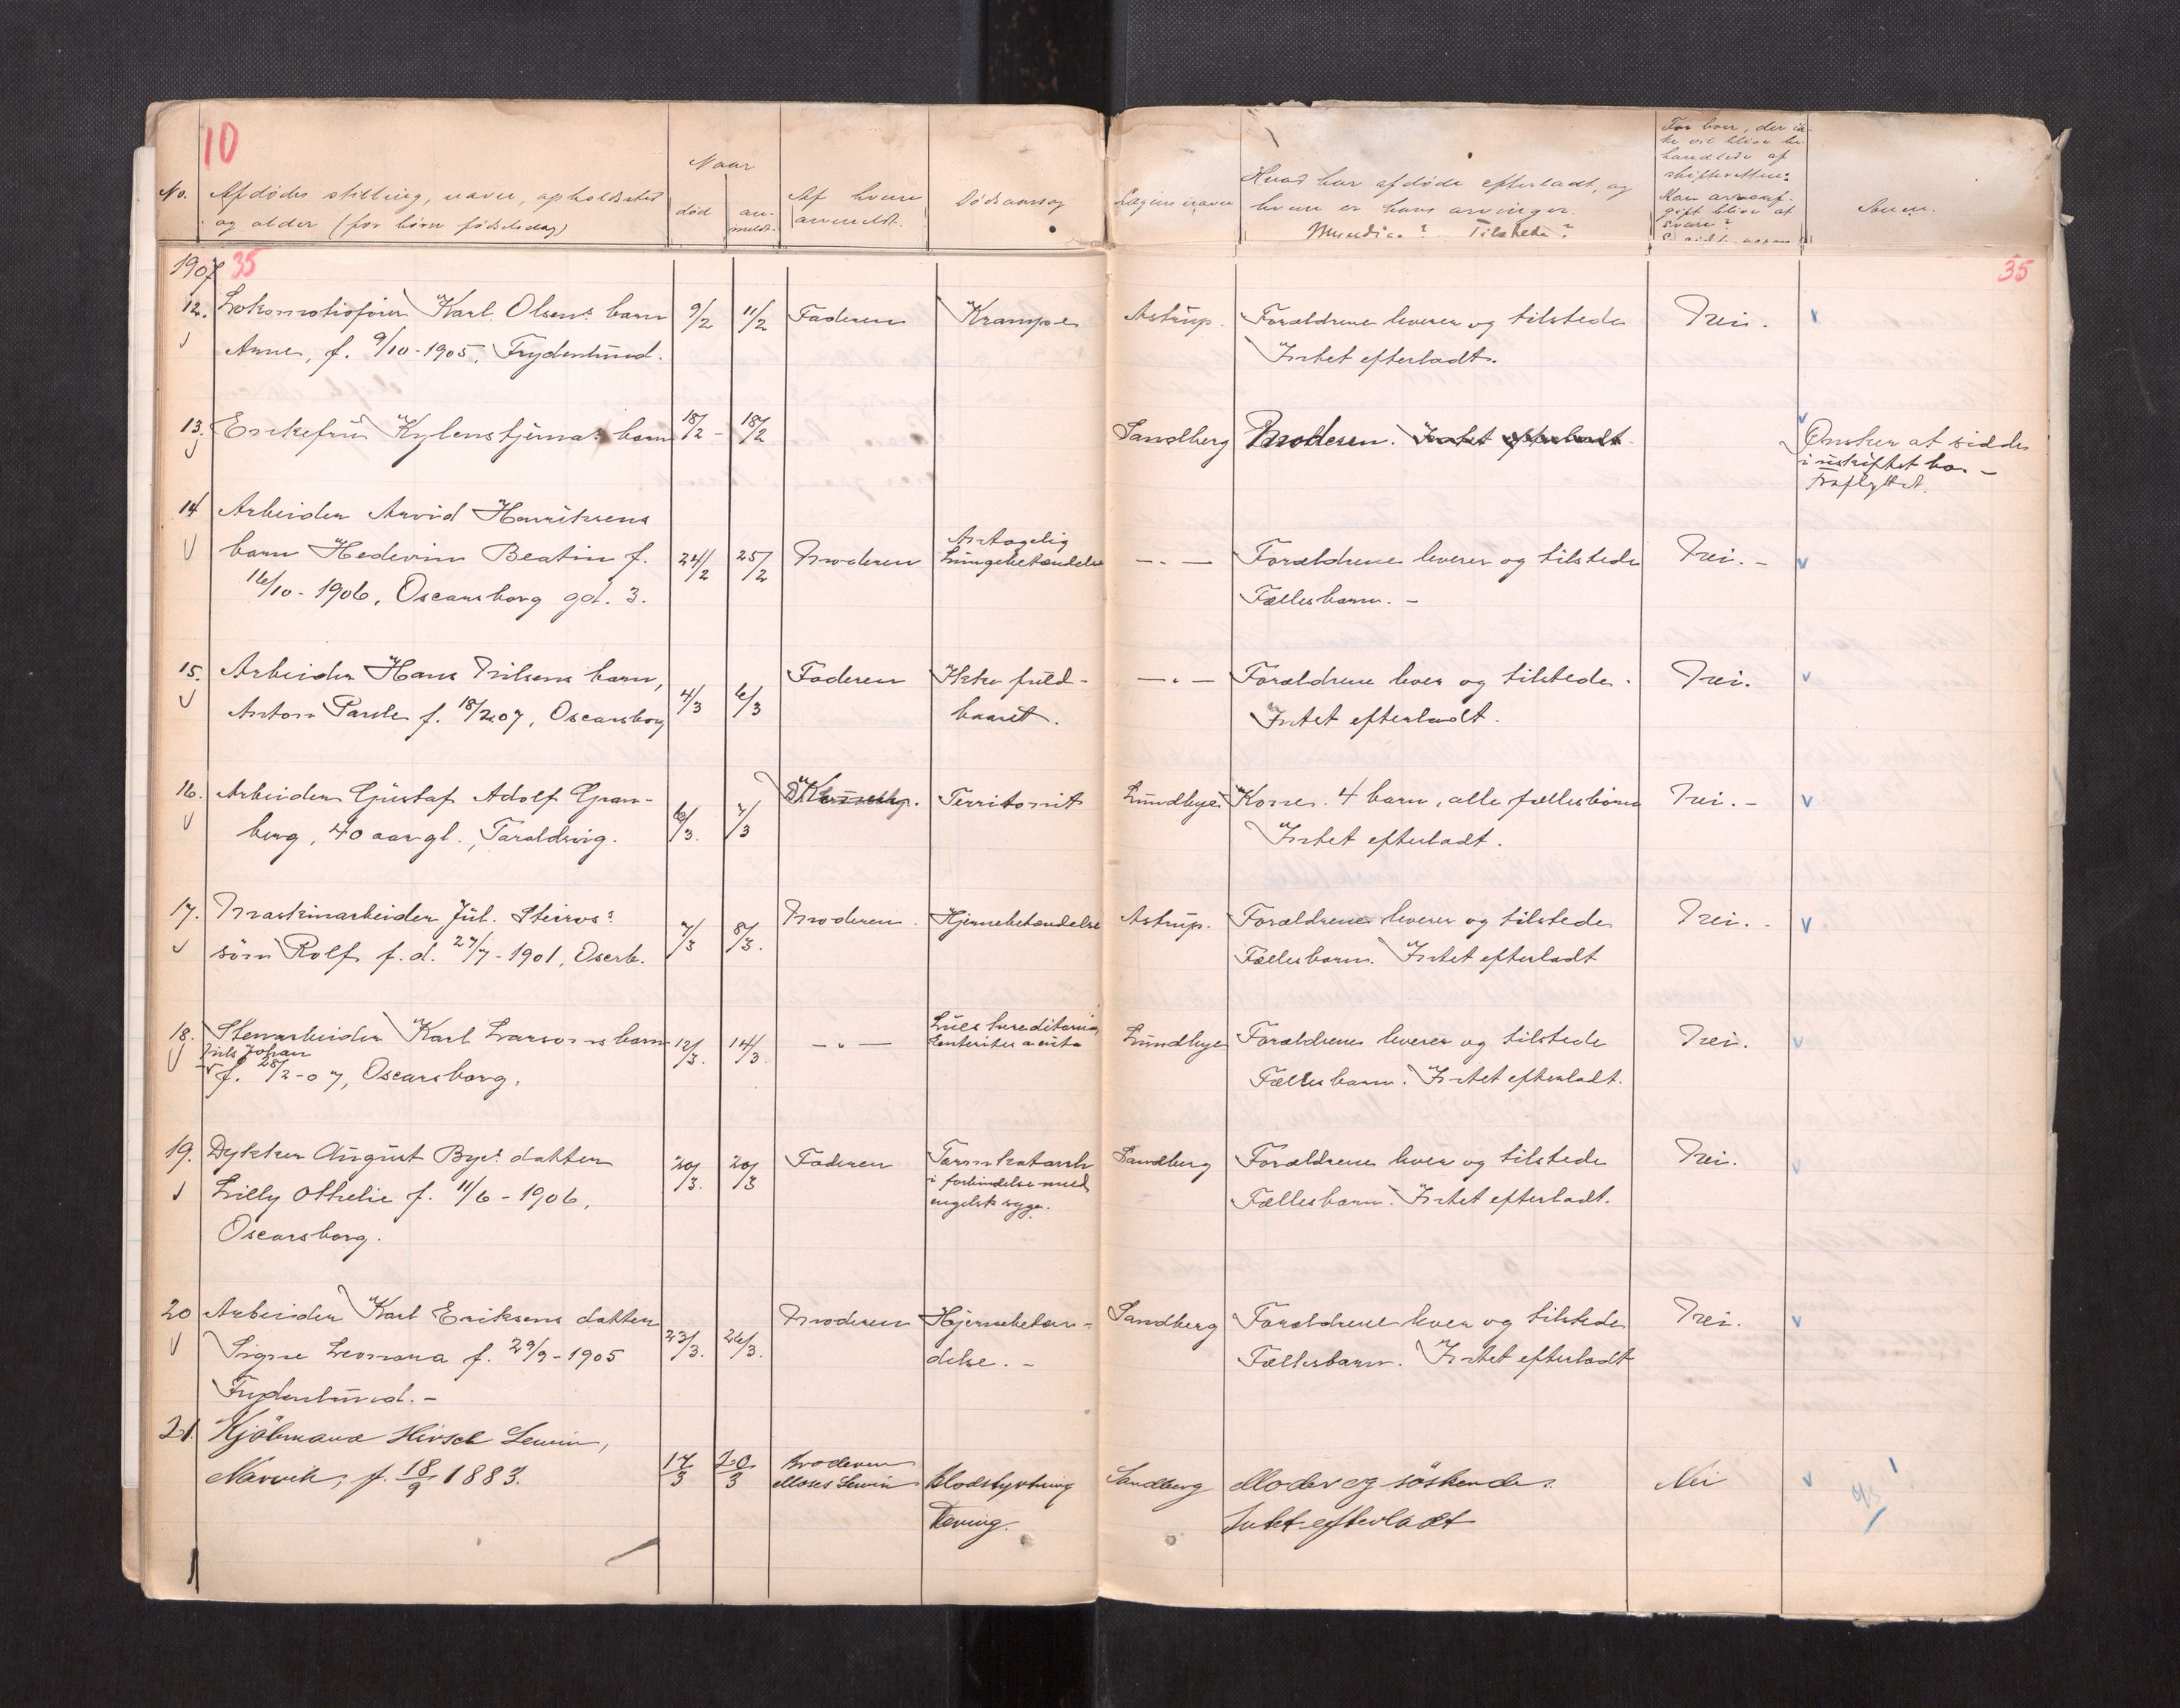 10
No.
Afdødes stilling, navn, opholdssted
og alder (for børn fødselsdag)
Naar
død
an-
meldt.
Af hvem
anmeldt.
Dødsaarsag
Lægens navn
Hvad har afdøde efterladt, og
hvem er hans arvinger.
Myndige? Tilstede?
For boer, der ik-
ke vil blive be-
handlede af
skifteretten:
Kan arveaf-
gift blive at
svare?
Anm.
1907 35
35
12. Lokomotivfører Karl Olsens barn 9/2 11/2 Faderen Krampe Astrup. Forældrene lever og tilstede Nei. v
Anne, f. 9/10-1905, Frydenlund. Intet efterladt.
13. Enkefru Kylenstjernas barn 18/2 - 18/2 Sandberg Moderen. Intet efterladt. Ønsker at sidde
i uskiftet bo. -
Fraflyttet.
14 Arbeider Arvid Henriksens
barn Hedevin Beatin f. 24/2 25/2 Moderen Antagelig
Lungebetændelse —"— Forældrene lever og tilstede Nei. - v
16/10-1906, Oscarsborg gd. 3. Fællesbarn. -
15. Arbeider Hans Nilsens barn, 4/3 6/3 Faderen Ikke fuld- —"— Forældrene lever og tilstede. Nei. v
Anton Paule f. 18/2 07, Oscarsborg baaret. Intet efterladt.
16. Arbeider Gustaf Adolf Gran- 6/3. 7/3 Peritonit Lundbye Kone. 4 barn, alle fællesbørn Nei. - v
berg, 40 aar gl., Taraldsvig. Intet efterladt.
17. Maskinarbeider Jul. Steiros' 7/3 8/3. Moderen. Hjernebetændelse Astrup. Forældrene lever og tilstede Nei. - v
søn Rolf f. d. 27/7-1901, Oscrb. Fællesbarn. Intet efterladt
18. Stenarbeider Karl Larsons barn 12/3. 14/3. —"— Lues hereditaria,
Enterites acuta Lundbye Forældrene lever og tilstede Nei. v
Nils Johan
f. 28/2-07, Oscarsborg. Fællesbarn. Intet efterladt.
19. Dykker August Bye's datter 20/3. 20/3 Faderen Tarmkatarrh
i forbindelse med
engelsk syge. Sandberg Forældrene lever og tilstede Nei. v
Lilly Othelie f. 11/6-1906, Fællesbarn. Intet efterladt.
Oscarsborg.
20 Arbeider Karl Eriksens datter 23/3. 26/3. Moderen Hjernebetæn- Sandberg Forældrene lever og tilstede Nei. v
Signe Leonora f. 29/9-1905 delse. - Fællesbarn. Intet efterladt
Frydenlund. -
21. Kjöbmand Hirsch Lewin,
Narvik, f. 18/9 1883. 17/3 20/3 Broderen
Moses Lewin Blodstyrtning Sandberg Moder og söskende. Nei v
Tæring. Intet efterladt